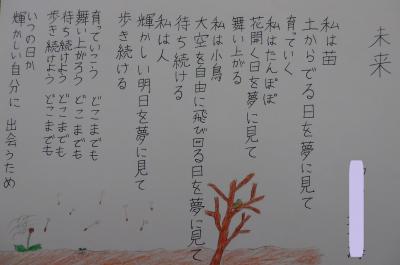 未来
私は苗
土からでる日を夢に見て
育ていく
私はたんぽぽ
花開く日を夢に見て
舞い上がる
私は小鳥
大空を自由に飛び回る日を夢に見て
待ち続ける
私は人
輝かしい明日を夢に見て
歩き続ける
育っていこう どこまでも
舞い上がろう どこまでも
待ち続けよう どこまでも
歩き続けよう どこまでも
いつの日か
輝かしい自分に 出会うため